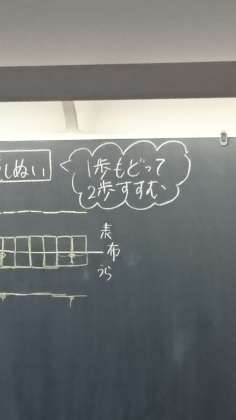 しぬい
1歩もどって
2歩すすむ
表
布
うら